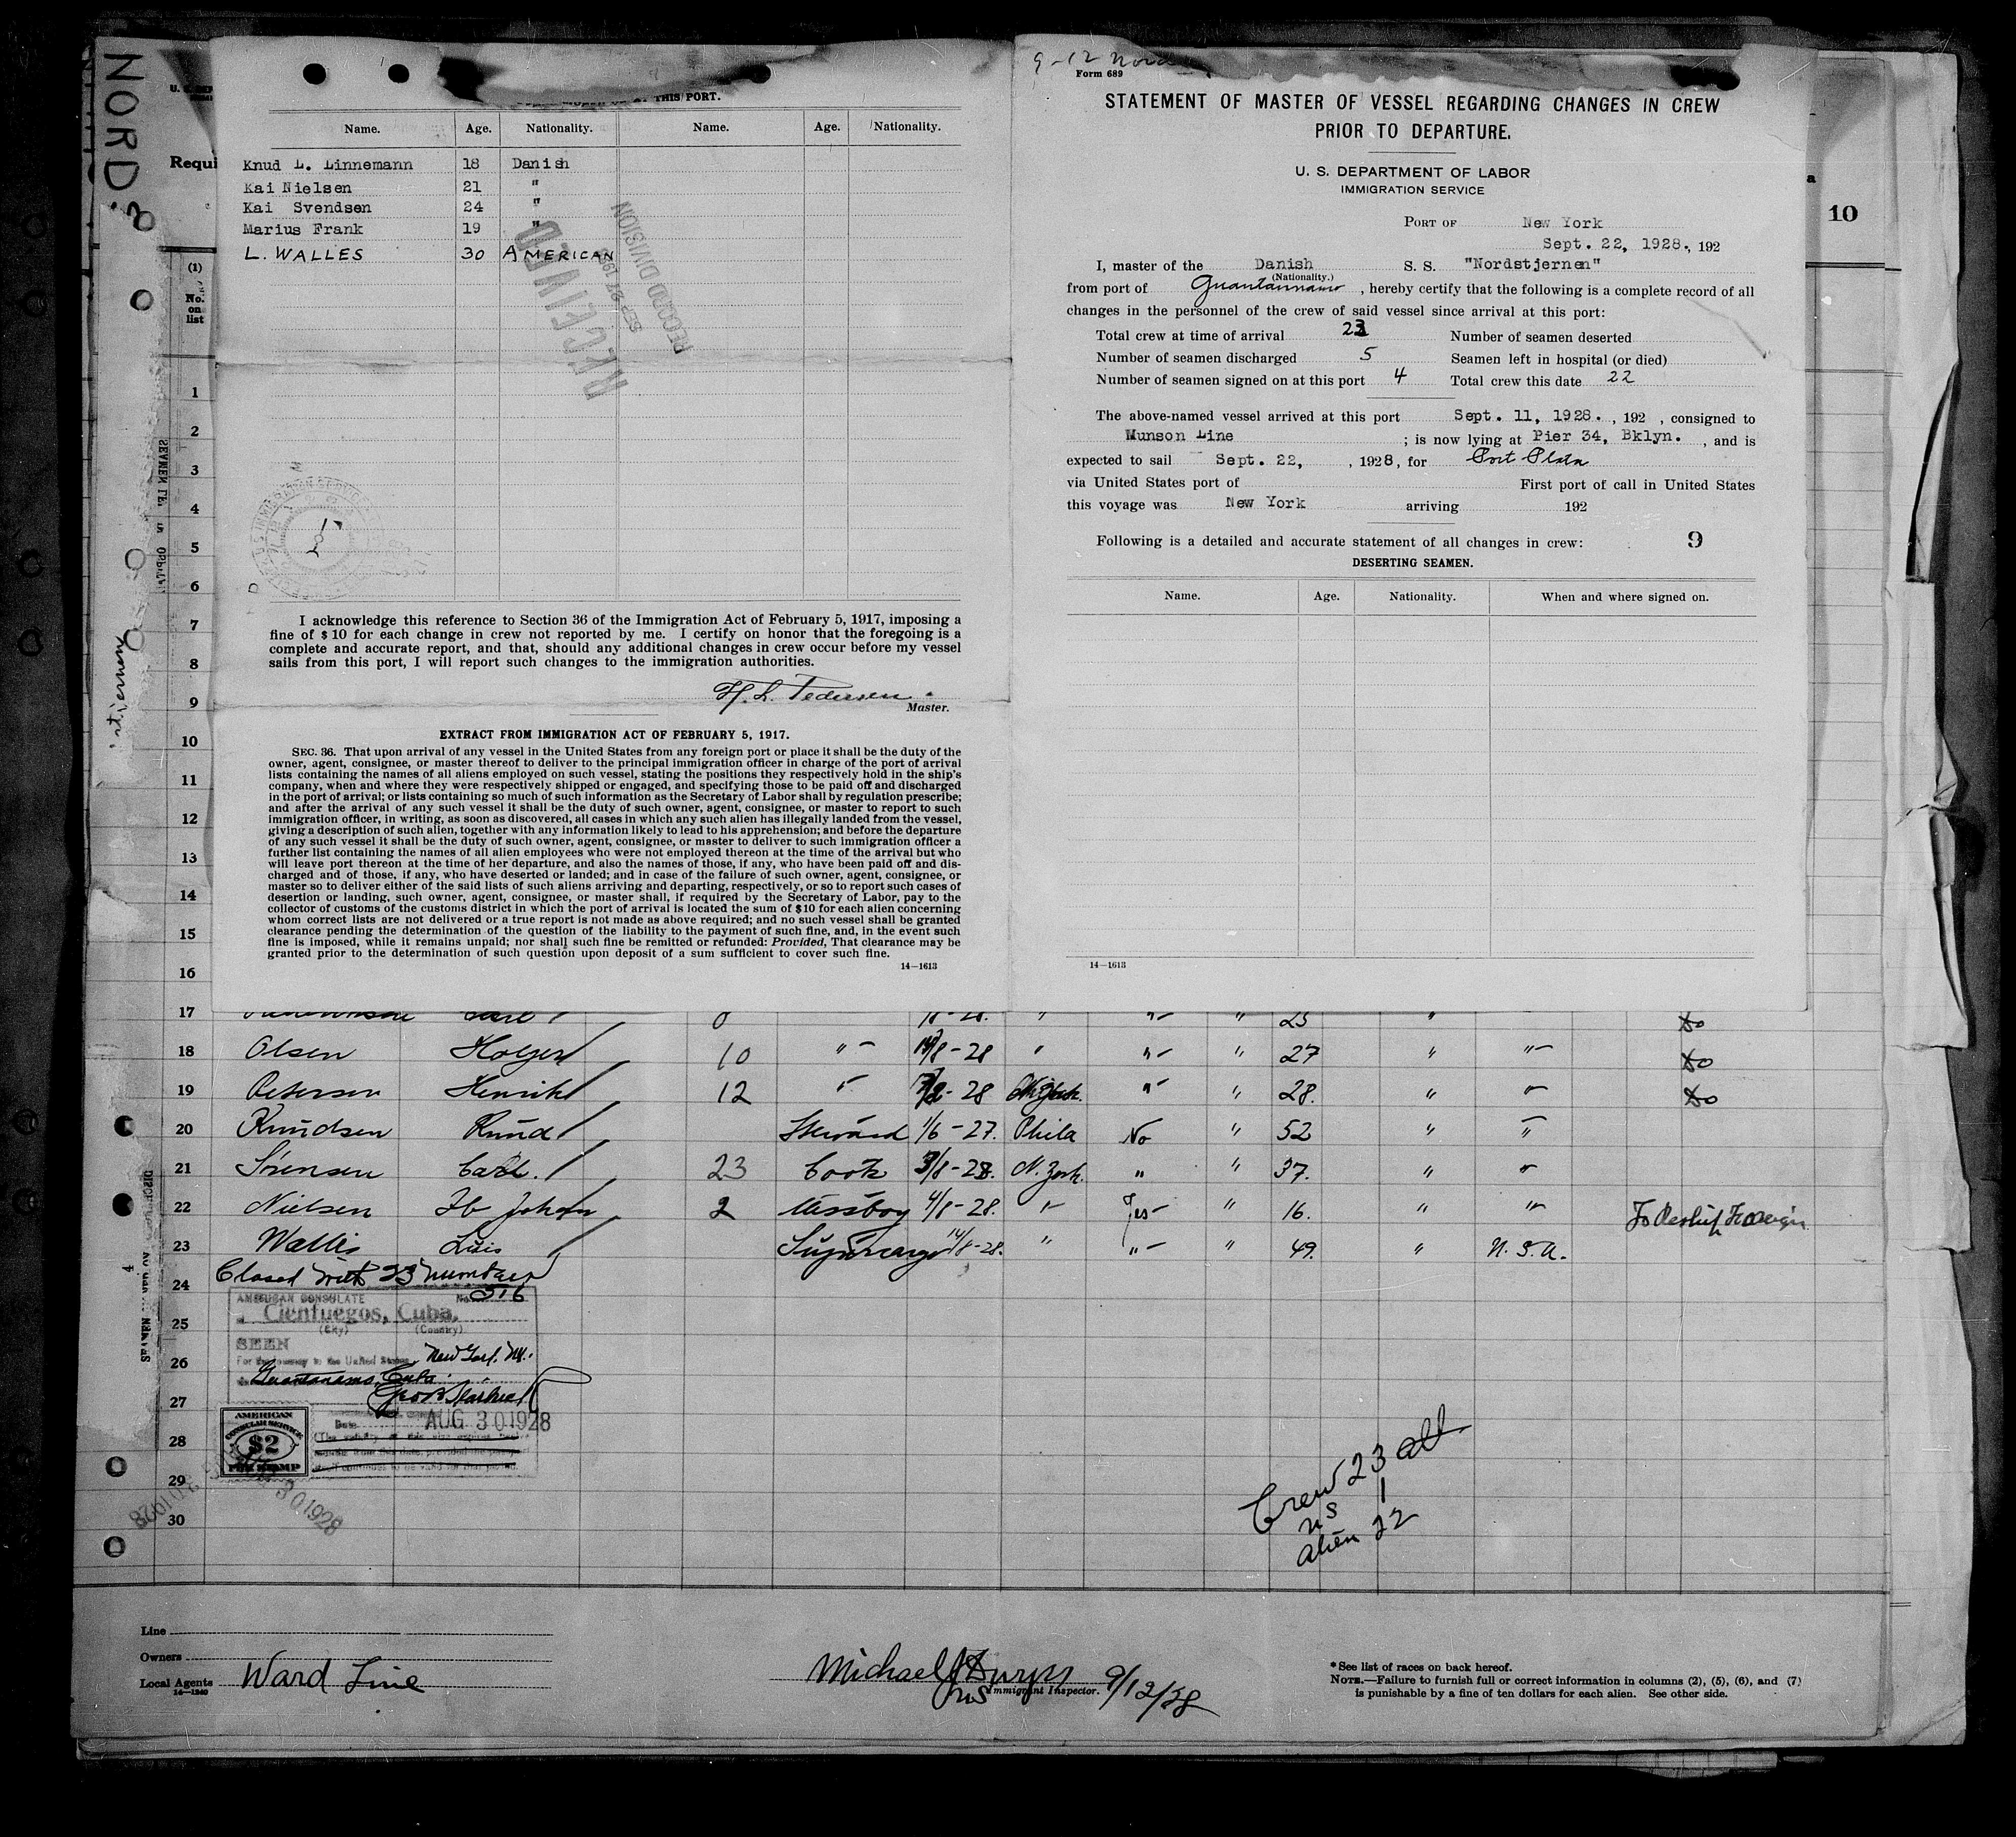 NORD:
Requi
(1)
No.
on
list
THIS PORT.
Name. Age. Nationality. Name. Age. Nationality.
Knud L. Linnemann 18 Danish
Kai Nielsen 21 "
Kai Svendsen 24 "
Marius Frank 19 "
L. WALLES 30 AMERICAN
RECEIVED
SEP 27 192
RECORD DIVISION
I acknowledge this reference to Section 36 of the Immigration Act of February 5, 1917, imposing a
fine of $10 for each change in crew not reported by me. I certify on honor that the foregoing is a
complete and accurate report, and that, should any additional changes in crew occur before my vessel
sails from this port, I will report such changes to the immigration authorities.
H. L. Pedersen.
Master.
EXTRACT FROM IMMIGRATION ACT OF FEBRUARY 5, 1917.
SEC. 36. That upon arrival of any vessel in the United States from any foreign port or place it shall be the duty of the
owner, agent, consignee, or master thereof to deliver to the principal immigration officer in charge of the port of arrival
lists containing the names of all aliens employed on such vessel, stating the positions they respectively hold in the ship's
company, when and where they were respectively shipped or engaged, and specifying those to be paid off and discharged
in the port of arrival; or lists containing so much of such information as the Secretary of Labor shall by regulation prescribe;
and after the arrival of any such vessel it shall be the duty of such owner, agent, consignee, or master to report to such
immigration officer, in writing, as soon as discovered, all cases in which any such alien has illegally landed from the vessel,
giving a description of such alien, together with any information likely to lead to his apprehension; and before the departure
of any such vessel it shall be the duty of such owner, agent, consignee, or master to deliver to such immigration officer a
further list containing the names of all alien employees who were not employed thereon at the time of the arrival but who
will leave port thereon at the time of her departure, and also the names of those, if any, who have been paid off and dis-
charged and of those, if any, who have deserted or landed; and in case of the failure of such owner, agent, consignee, or
master so to deliver either of the said lists of such aliens arriving and departing, respectively, or so to report such cases of
desertion or landing, such owner, agent, consignee, or master shall, if required by the Secretary of Labor, pay to the
collector of customs of the customs district in which the port of arrival is located the sum of $10 for each alien concerning
whom correct lists are not delivered or a true report is not made as above required; and no such vessel shall be granted
clearance pending the determination of the question of the liability to the payment of such fine, and, in the event such
fine is imposed, while it remains unpaid; nor shall such fine be remitted or refunded: Provided, That clearance may be
granted prior to the determination of such question upon deposit of a sum sufficient to cover such fine.
14—1613
9-12 Nord
Form 689
STATEMENT OF MASTER OF VESSEL REGARDING CHANGES IN CREW
PRIOR TO DEPARTURE.
U. S. DEPARTMENT OF LABOR
IMMIGRATION SERVICE
PORT OF New York
Sept. 22, 1928., 192
I, master of the Danish S. S. "Nordstjernen"
(Nationality.)
from port of Guantannamo, hereby certify that the following is a complete record of all
changes in the personnel of the crew of said vessel since arrival at this port:
Total crew at time of arrival 23 Number of seamen deserted
Number of seamen discharged 5 Seamen left in hospital (or died)
Number of seamen signed on at this port 4 Total crew this date 22
The above-named vessel arrived at this port Sept. 11, 1928. , 192 , consigned to
Munson Line ; is now lying at Pier 34, Bklyn. , and is
expected to sail Sept. 22, , 1928, for Port Plata
via United States port of First port of call in United States
this voyage was New York arriving 192
Following is a detailed and accurate statement of all changes in crew: 9
DESERTING SEAMEN.
Name. Age. Nationality. When and where signed on.
14—1613
10
1
2
3
4
5
6
7
8
9
10
11
12
13
14
15
16
17 " " " 25 " do
18 Olsen Holger 10 " 8-28 " " " 27 " " do
19 Petersen Henrik 12 " -28 " " 28. " " do
20 Knudsen Knud Steward 1/6-27. Phila No " 52 " "
21 Sørensen Carl. 23 Cook 3/8-28. N. York. " " 37. " "
22 Nielsen Ib Johan 2 Messboy 4/8-28. " Yes " 16. " " To Reship Foreign
23 Wallis Luis Supercargo 14/8-28. " " " 49. " U. S. A.
Closed with 23 members
24
25
26
27
28
29
30
AMERICAN CONSULATE No. 516
Cienfuegos, Cuba.
(City) (Country)
SEEN
For the journey to the United States New York. NY.
Guantanamo, Cuba.
Date AUG 30 1928
AMERICAN
CONSULAR SERVICE
$2
FEE STAMP
30 1928
Crew 23 all
US 1
alien 22
Line
Owners
Local Agents Ward Line
14—1240
Michael
Immigrant Inspector. 9/12/28
* See list of races on back hereof.
NOTE.—Failure to furnish full or correct information in columns (2), (5), (6), and (7)
is punishable by a fine of ten dollars for each alien. See other side.